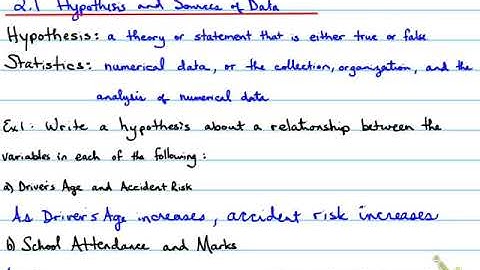 2.1 Hypothesis and Sources of Data
Hypothesis: a theory or statement that is either true or false
Statistics: numerical data, or the collection, organization, and the
analysis of numerical data
Ex1. Write a hypothesis about a relationship between the
variables in each of the following:
a) Driver's Age and Accident Risk
As Driver's Age increases, accident risk increases
b) School Attendance and Marks